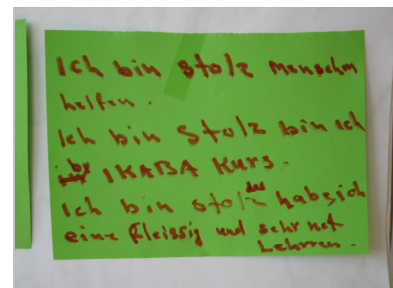 Ich bin stolz menschm
helfen.
Ich bin stolz bin ich
IKABA Kurs.
Ich bin stolz das habsich
eine fleissig und sehr net
Lehrren.